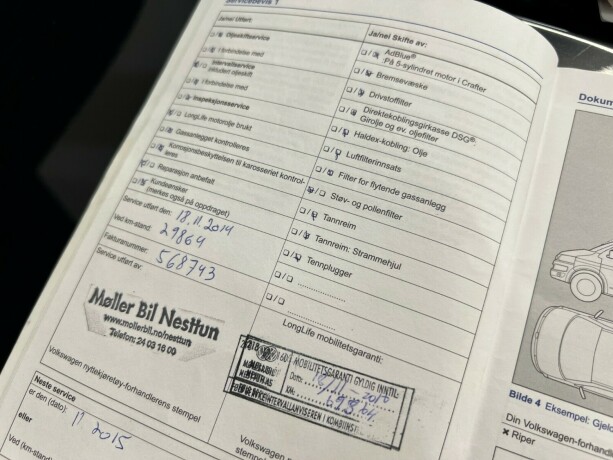 Servicebevis 1
Ja/nei Utført:
Oljeskiftservice
I forbindelse med
Intervallservice
inkludert oljeskift
I forbindelse med
Inspeksjonsservice
LongLife motorolje brukt
Gassanlegget kontrolleres
Korrosjonsbeskyttelsen til karosseriet kontrol-
leres
Reparasjon anbefalt
Kundeønsker
(merkes også på oppdraget)
Service utført den: 18.11.2014
Ved km-stand: 29864
Fakturanummer: 568743
Service utført av:
Møller Bil Nesttun
www.mollerbil.no/nesttun
Telefon: 24 03 18 00
Volkswagen nyttekjøretøy-forhandlerens stempel
Neste service
er den (dato): 11 2015
eller
Ved (km-stand)
Ja/nei Skifte av:
AdBlue®
:På 5-sylindret motor i Crafter
Bremsevæske
Drivstoffilter
Direktekoblingsgirkasse DSG®:
Girolje og ev. oljefilter
Haldex-kobling: Olje
Luftfilterinnsats
Filter for flytende gassanlegg
Støv- og pollenfilter
Tannreim
Tannreim: Strammehjul
Tennplugger
LongLife mobilitetsgaranti:
MOBILITETSGARANTI GYLDIG INNTIL:
Dato:
KM:
Volkswagen
Dokum
Bilde 4 Eksempel: Gjeld
Din Volkswagen-forhand
× Riper